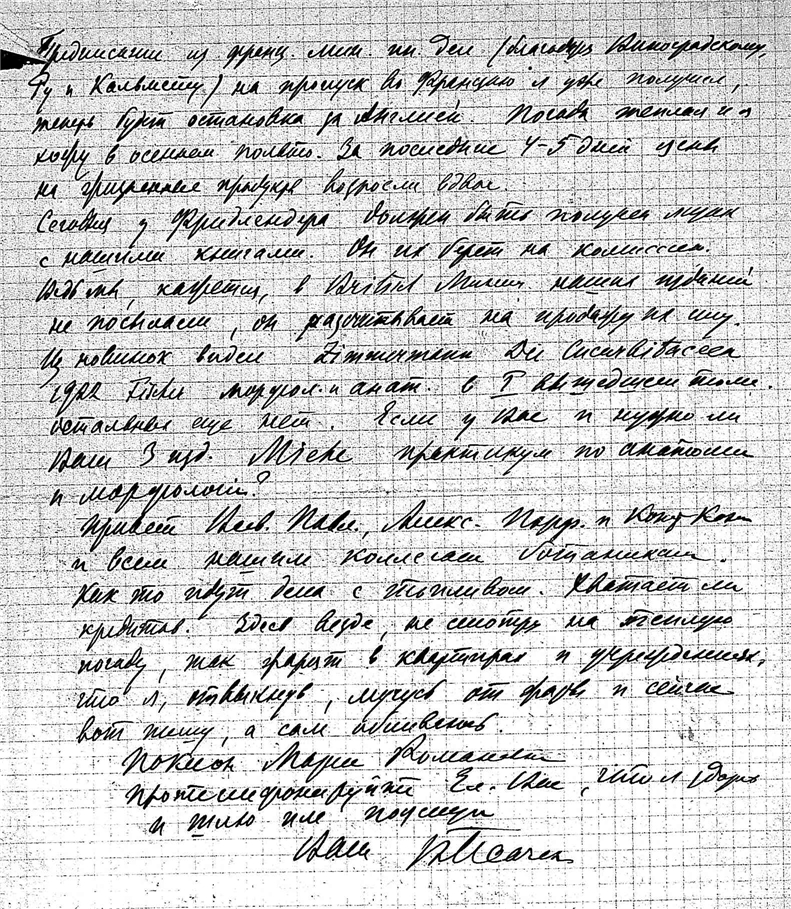 Предписание из франц. мин. ин. дел (благодаря Виноградскому,
Ру и Кальмету) на пропуск во Францию я уже получил,
теперь будет остановка за Англией. Погода теплая и я
хожу в осеннем пальто. За последние 4-5 дней цены
на продукты возросли вдвое.
Сегодня у Фридлендера должен быть получен ящик
с нашими книгами. Он их берет на комиссию.
Ведь мы, кажется, в British Museum наших изданий
не посылали, он рассчитывает на продажу их ему.
Из новинок видел Zimmermann Die Cucurbitaceen
1922 морфол. и анат. в I вышедшем томе.
остальных еще нет. Есть ли у Вас и нужно ли
Вам 3 изд. Miehe практикум по анатомии
и морфологии?
Привет Все. Павл., Алекс. и
и всем нашим коллегам ботаникам.
Как то идут дела с топливом. Хватает ли
кредитов. Здесь везде, не смотря на теплую
погоду, так жарят в квартирах и учреждениях,
что я, отвыкнув, мучусь от жары и сейчас
вот пишу, а сам обливаюсь.
Поклон Марии Романовне
Протелефонируйте Ел. Вас, что я здоров
и шлю им поцелуи
Ваш Исачен